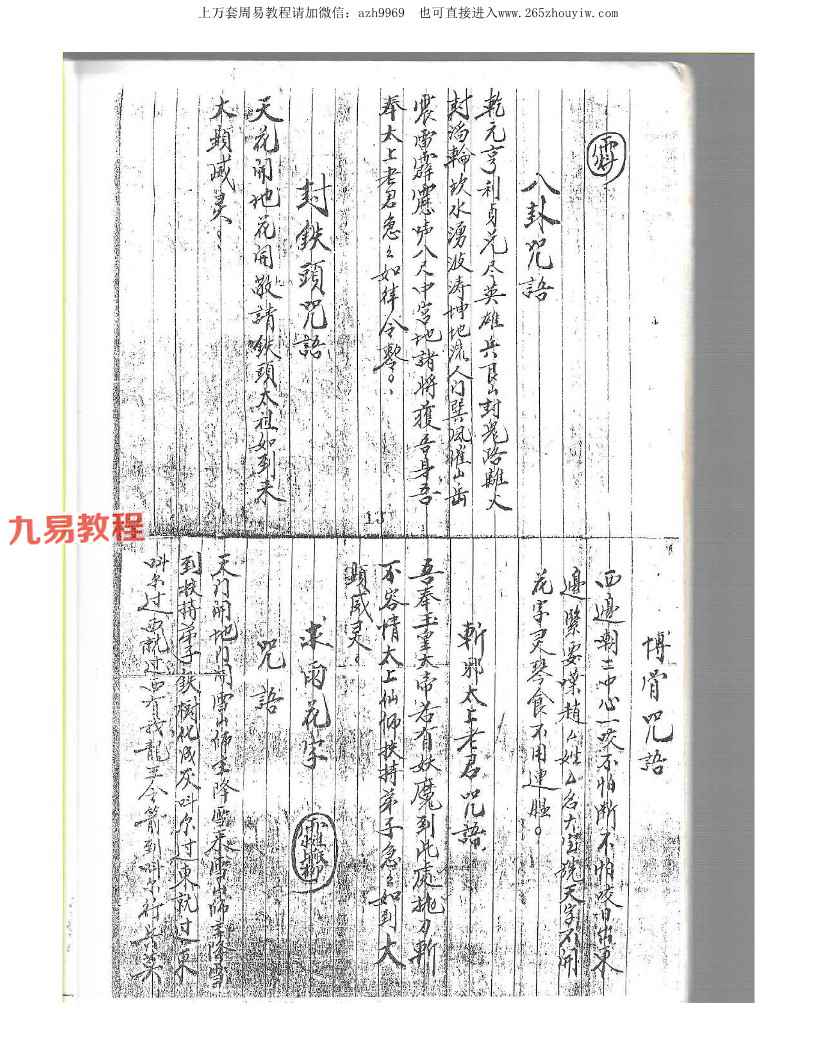 上万套周易教程请加微信：azh9969　也可直接进入www.265zhouyiw.com
八卦咒語
乾元亨利貞兑尽英雄兵艮山封鬼路離火
封滔輪坎水湧波涛坤地流人门巽风摧山岳
震雷霹靂声八尺中宫地諸將獲吾身吾
奉太上老君急々如律令
封鉄頭咒語
天花開地花開敬請鉄頭太祖如到来
大顯威灵。
13
博骨咒語
西邊朝土中心一咬不怕断不怕咬日出東
邊緊要葉趙厶姓厶名大宝桄天字不開
花字灵琴食不用連脇。
斬邪太上老君咒語
吾奉玉皇大帝若有妖魔到此處拖刀斬
不容情太上仙师扶持弟子急々如到大
顕威灵。
求雨花字
咒語
天门開地门開雪山师主降雪来雪山师主降雪
到扶持弟子鉄樹化成灰叫尔过東就过東
叫尔过西就过西有我龍 令箭到叫尔行兵
九易教程